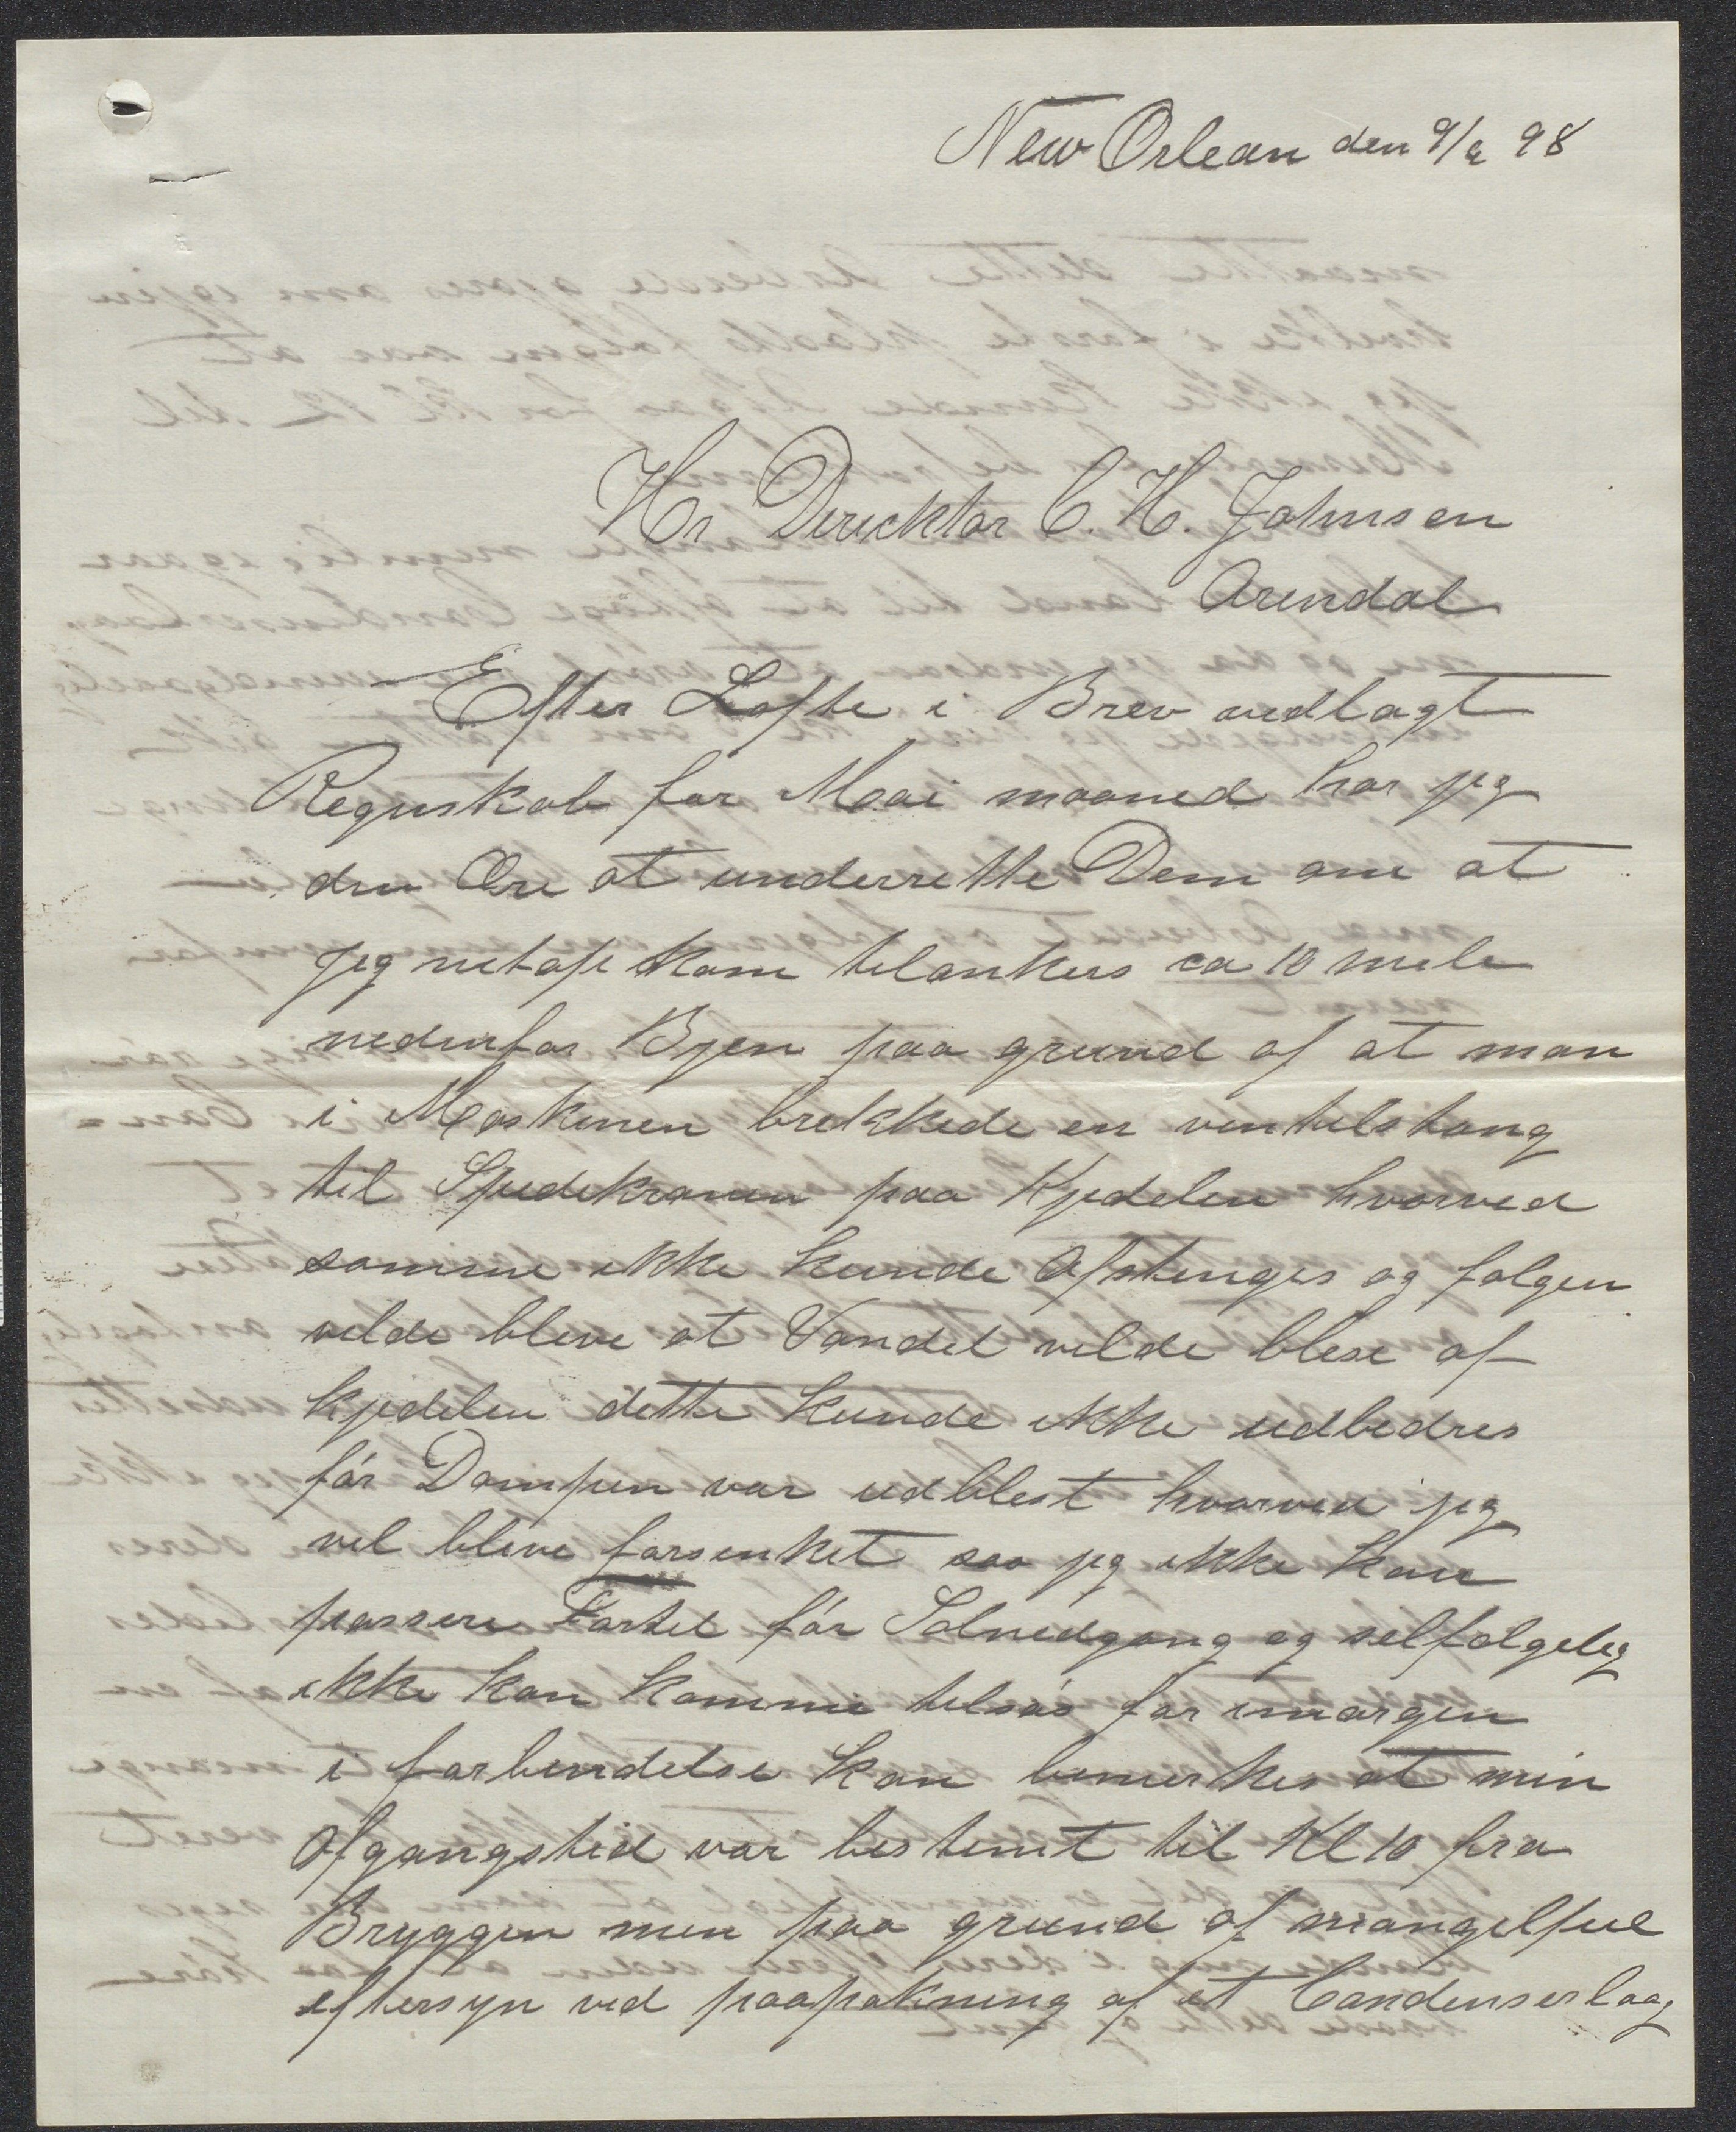 New Orlean den 9/6 98
Hr Direcktør C. H. Johnsen
Arendal
Efter Løfte i Brev vedlagt
Regnskab for Mai maaned har jeg
den Ære at underrette Dem om at
jeg netop kom tilankers ca 10 mile
nedenfor Byen paa grund af at man
i Maskinen brekkede en ventilstang
til Spedekranen paa Kjedelen hvorved
samme ikke kunde Afstenges og følgen
vilde blive at Vandet vilde blese af
kjedelen dette kunde ikke udbedres
før Dampen var udblest hvorved jeg
vil blive forsenket saa jeg ikke kan
passere Fortet før Solnedgang og selfølgelig
ikke kan komme tilsøs før imorgen
i forbindelse kan bemerkes at min
Afgangstid var bestemt til Kl 10 fra
Bryggen men paa grund af mangelful
eftersyn ved paapakning af et Condenserlaag